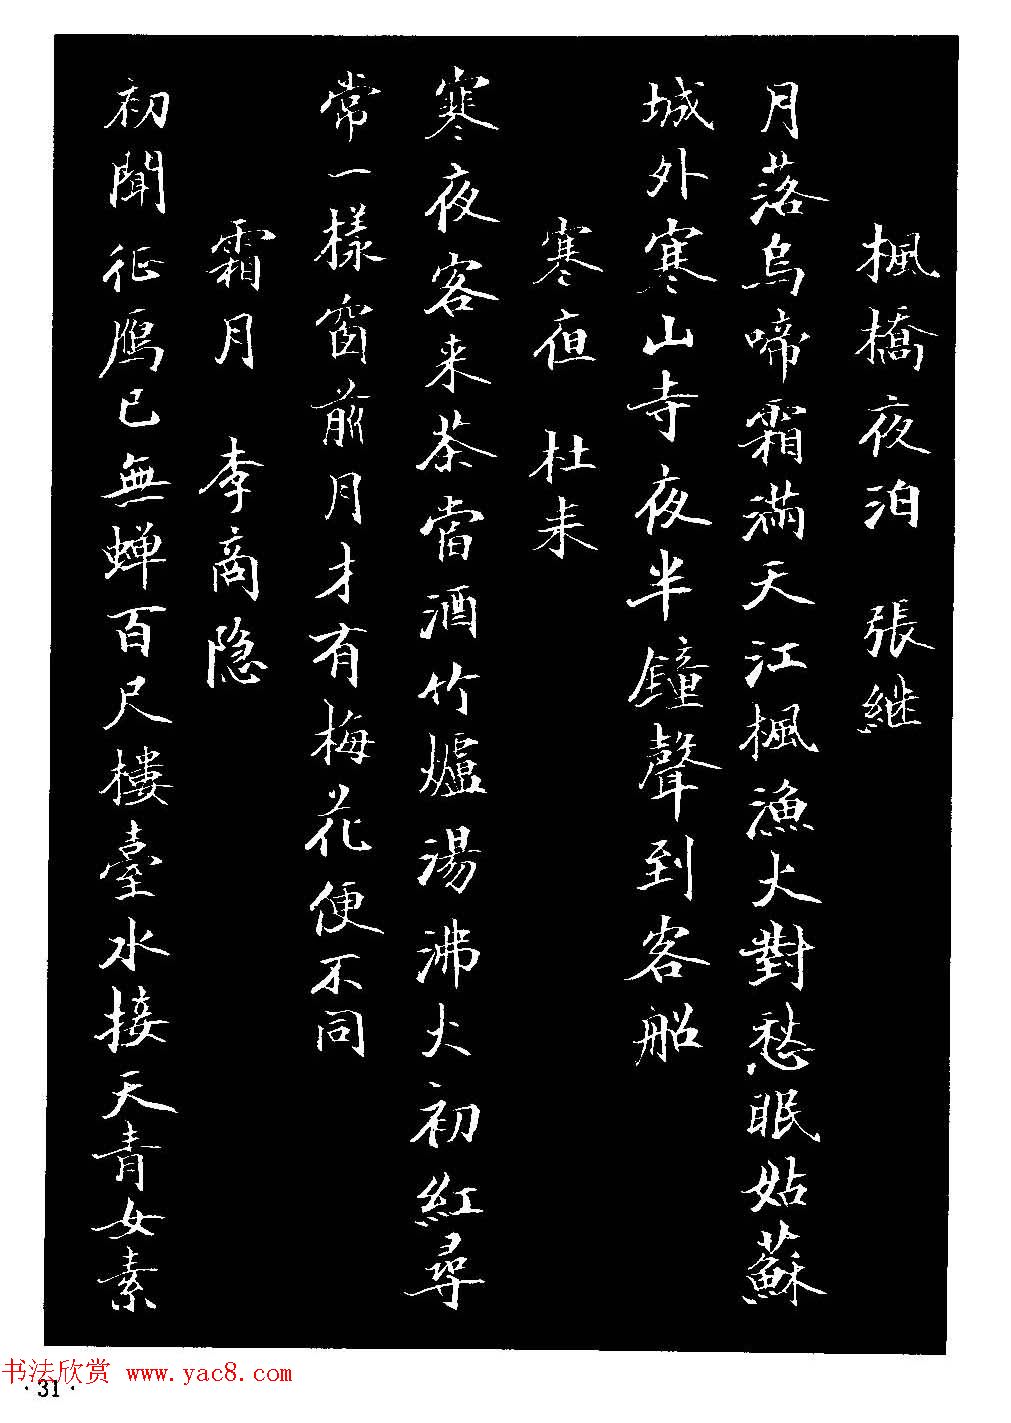 楓橋夜泊 張継
月落烏啼霜滿天江楓漁火對愁眠姑蘇
城外寒山寺夜半鐘聲到客船
寒夜 杜耒
寒夜客来茶當酒竹爐湯沸火初紅尋
常一樣窗前月才有梅花便不同
霜月 李商隐
初聞征鴈已無蝉百尺樓臺水接天青女素
书法欣赏 www.yac8.com
·31·